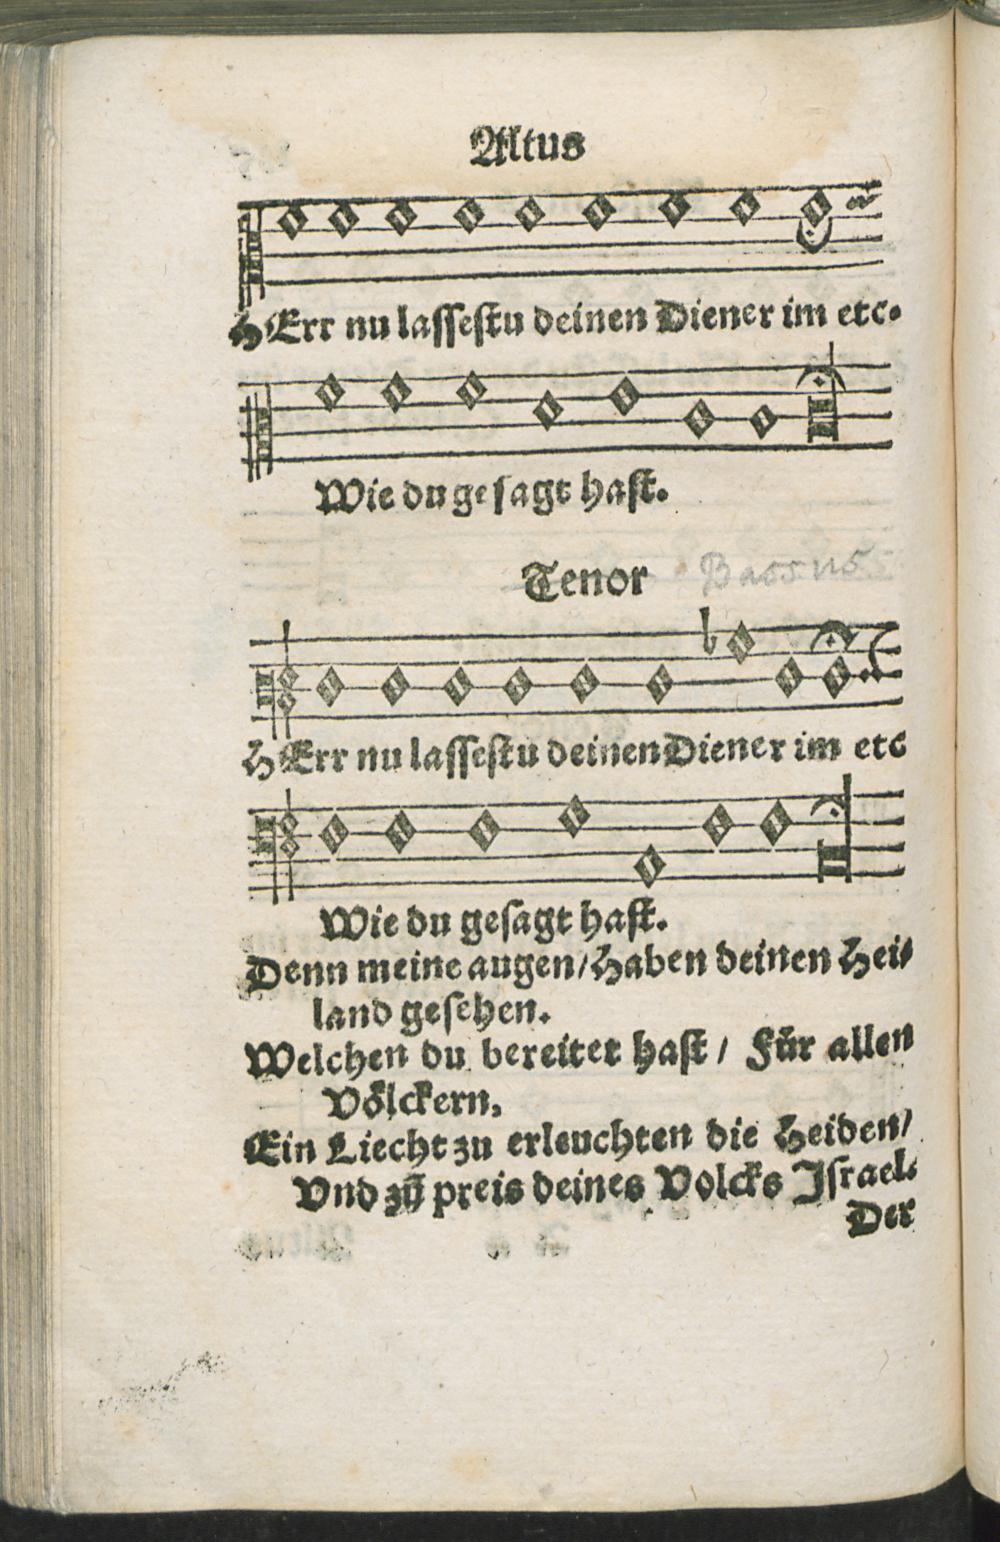 Altus
HErr nu lassestu deinen Diener im etc.
Wie du gesagt hast.
Tenor Bassus
HErr nu lassestu deinen Diener im etc
Wie du gesagt hast.
Denn meine augen/Haben deinen Hei-
land gesehen.
Welchen du bereitet hast / Für allen
Völckern,
Ein Liecht zu erleuchten die Heiden/
Vnd zū preis deines Volcks Israel.
Der